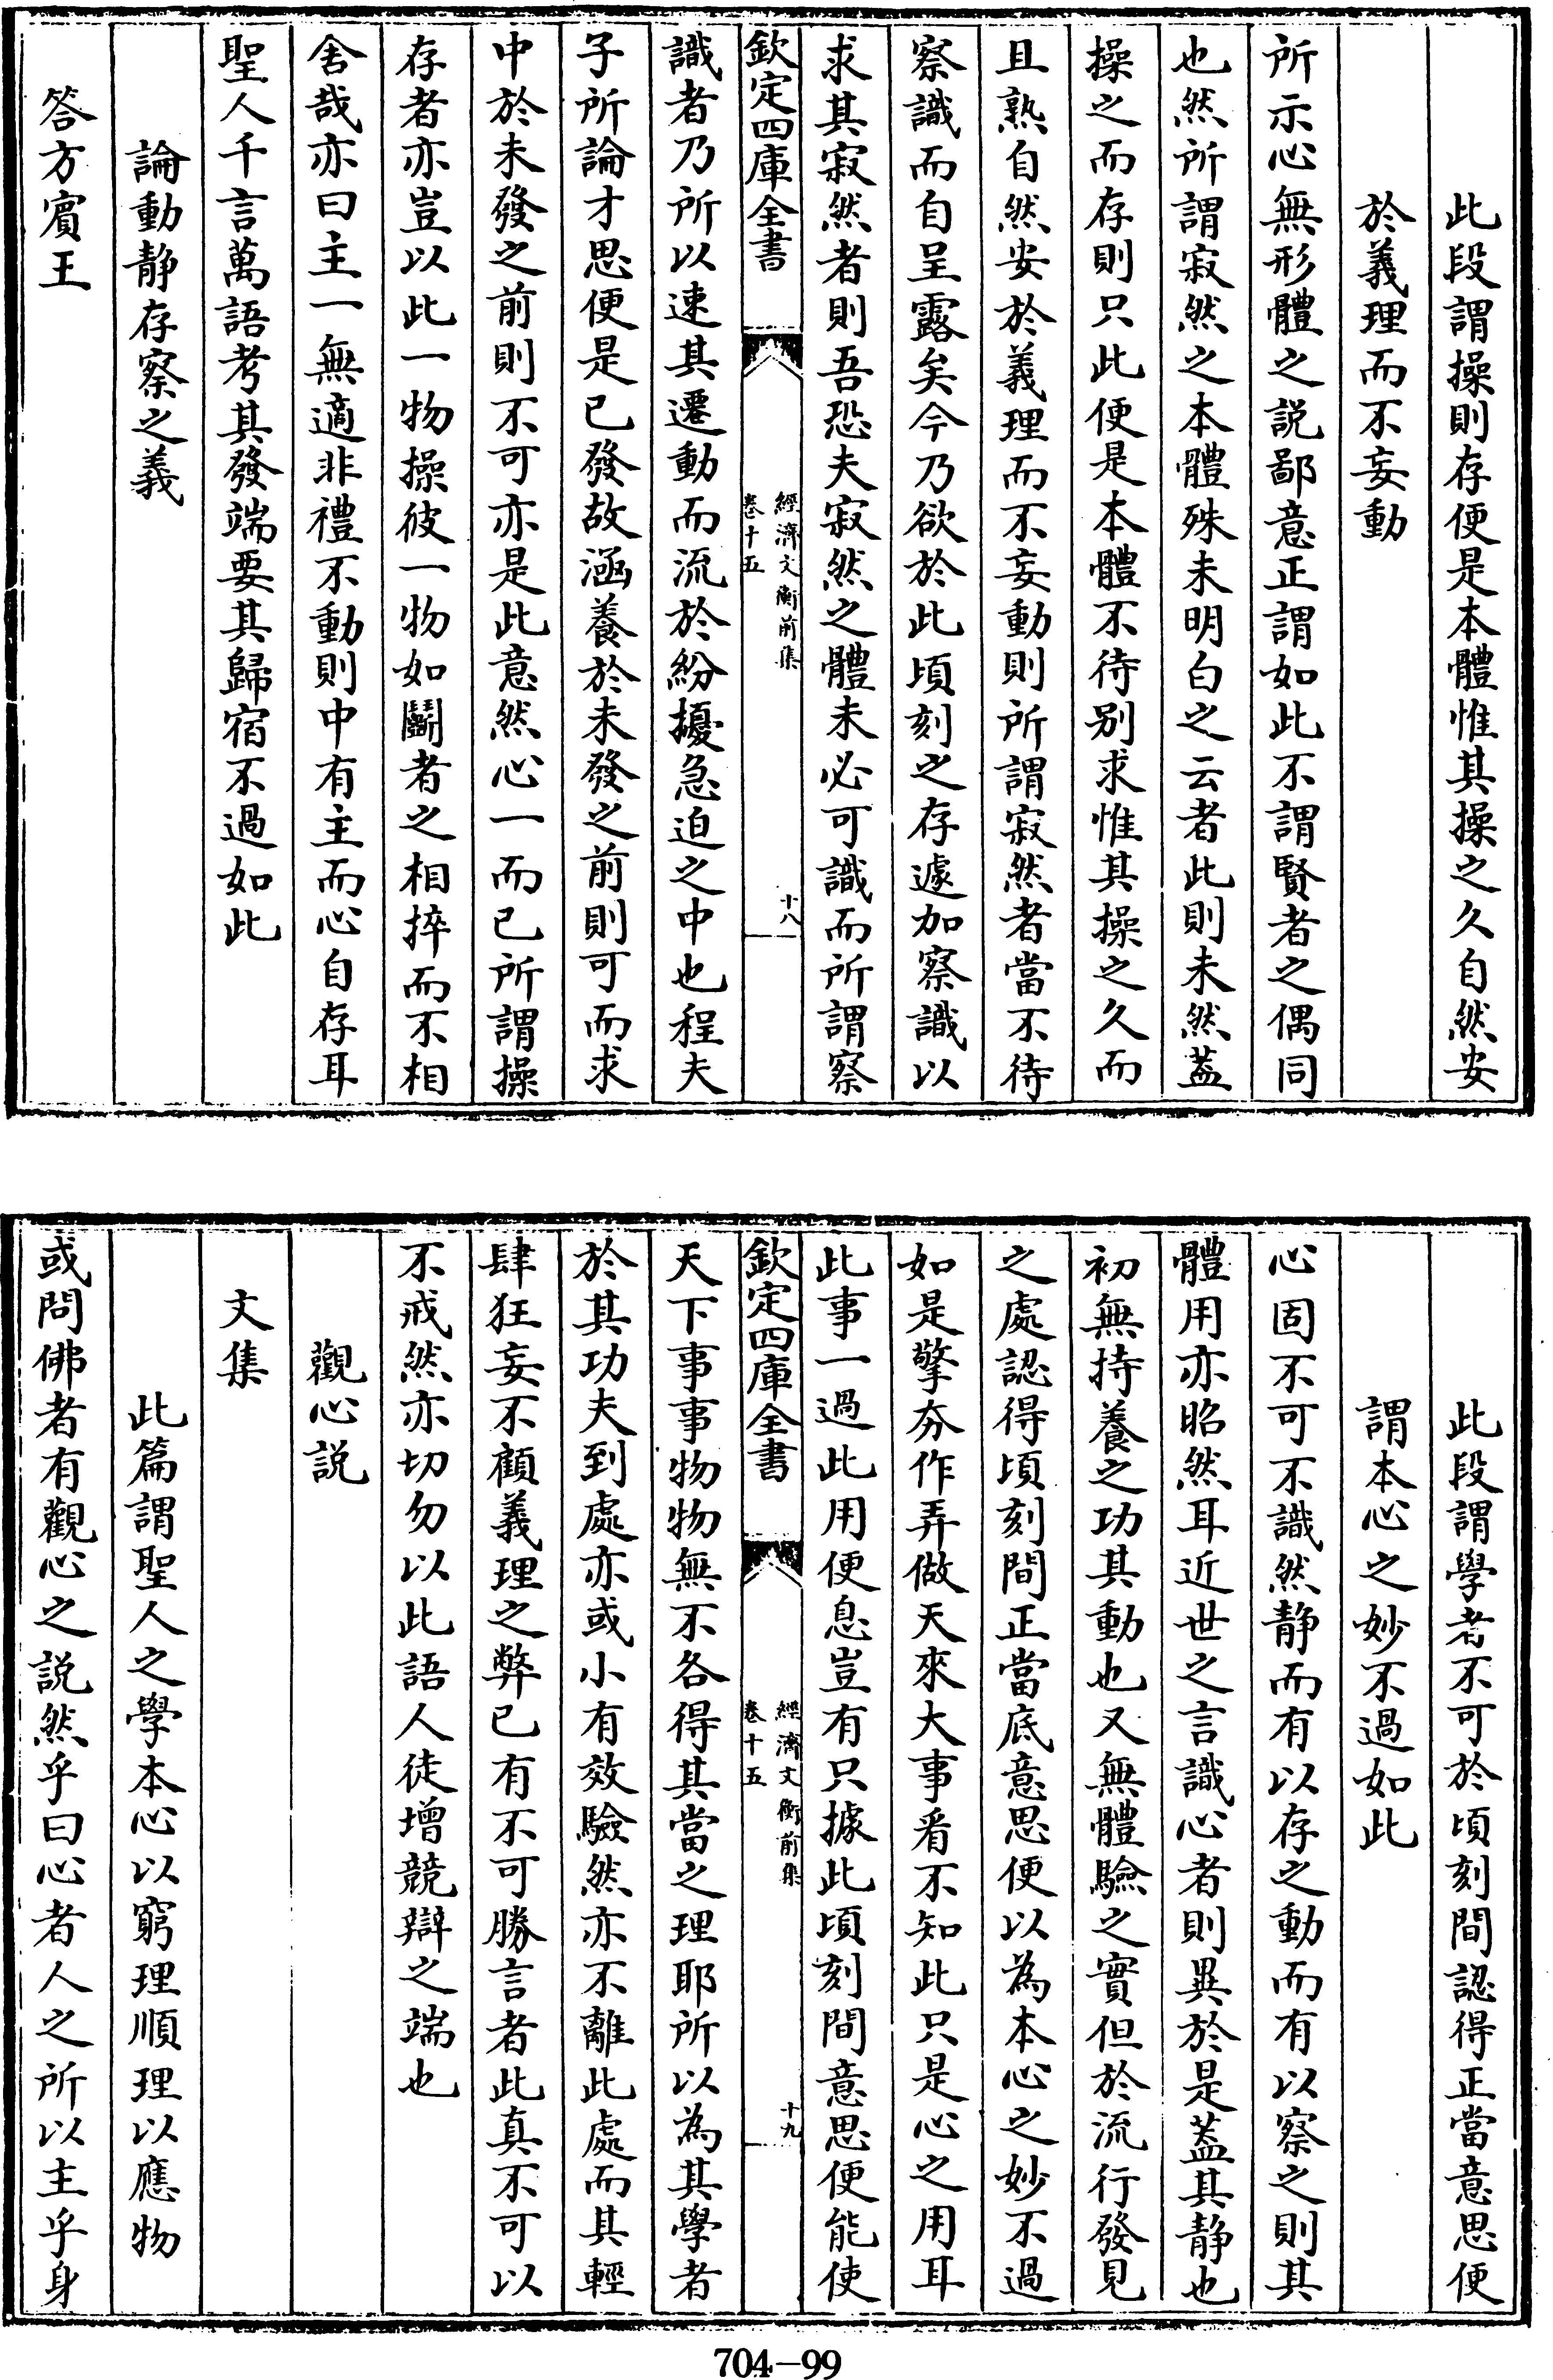 此段謂操則存便是本體惟其操之久自然安
於義理而不妄動
所示心無形體之説鄙意正謂如此不謂賢者之偶同
也然所謂寂然之本體殊未明白之云者此則未然蓋
操之而存則只此便是本體不待别求惟其操之久而
且熟自然安於義理而不妄動則所謂寂然者當不待
察識而自呈露矣今乃欲於此頃刻之存遽加察識以
求其寂然者則吾恐夫寂然之體未必可識而所謂察
欽定四庫全書
經濟文衡前集
卷十五
十八
識者乃所以速其遷動而流於紛擾急迫之中也程夫
子所論才思便是已發故涵養於未發之前則可而求
中於未發之前則不可亦是此意然心一而已所謂操
存者亦豈以此一物操彼一物如鬬者之相捽而不相
舍哉亦曰主一無適非禮不動則中有主而心自存耳
聖人千言萬語考其發端要其歸宿不過如此
論動静存察之義
答方賓王
此段謂學者不可於頃刻間認得正當意思便
謂本心之妙不過如此
心固不可不識然静而有以存之動而有以察之則其
體用亦昭然耳近世之言識心者則異於是蓋其静也
初無持養之功其動也又無體驗之實但於流行發見
之處認得頃刻間正當底意思便以為本心之妙不過
如是擎夯作弄做天來大事看不知此只是心之用耳
此事一過此用便息豈有只據此頃刻間意思便能使
欽定四庫全書
經濟文衡前集
卷十五
十九
天下事事物物無不各得其當之理耶所以為其學者
於其功夫到處亦或小有效驗然亦不離此處而其輕
肆狂妄不顧義理之弊已有不可勝言者此真不可以
不戒然亦切勿以此語人徒增競辯之端也
觀心説
文集
此篇謂聖人之學本心以窮理順理以應物
或問佛者有觀心之説然乎曰心者人之所以主乎身
704-99